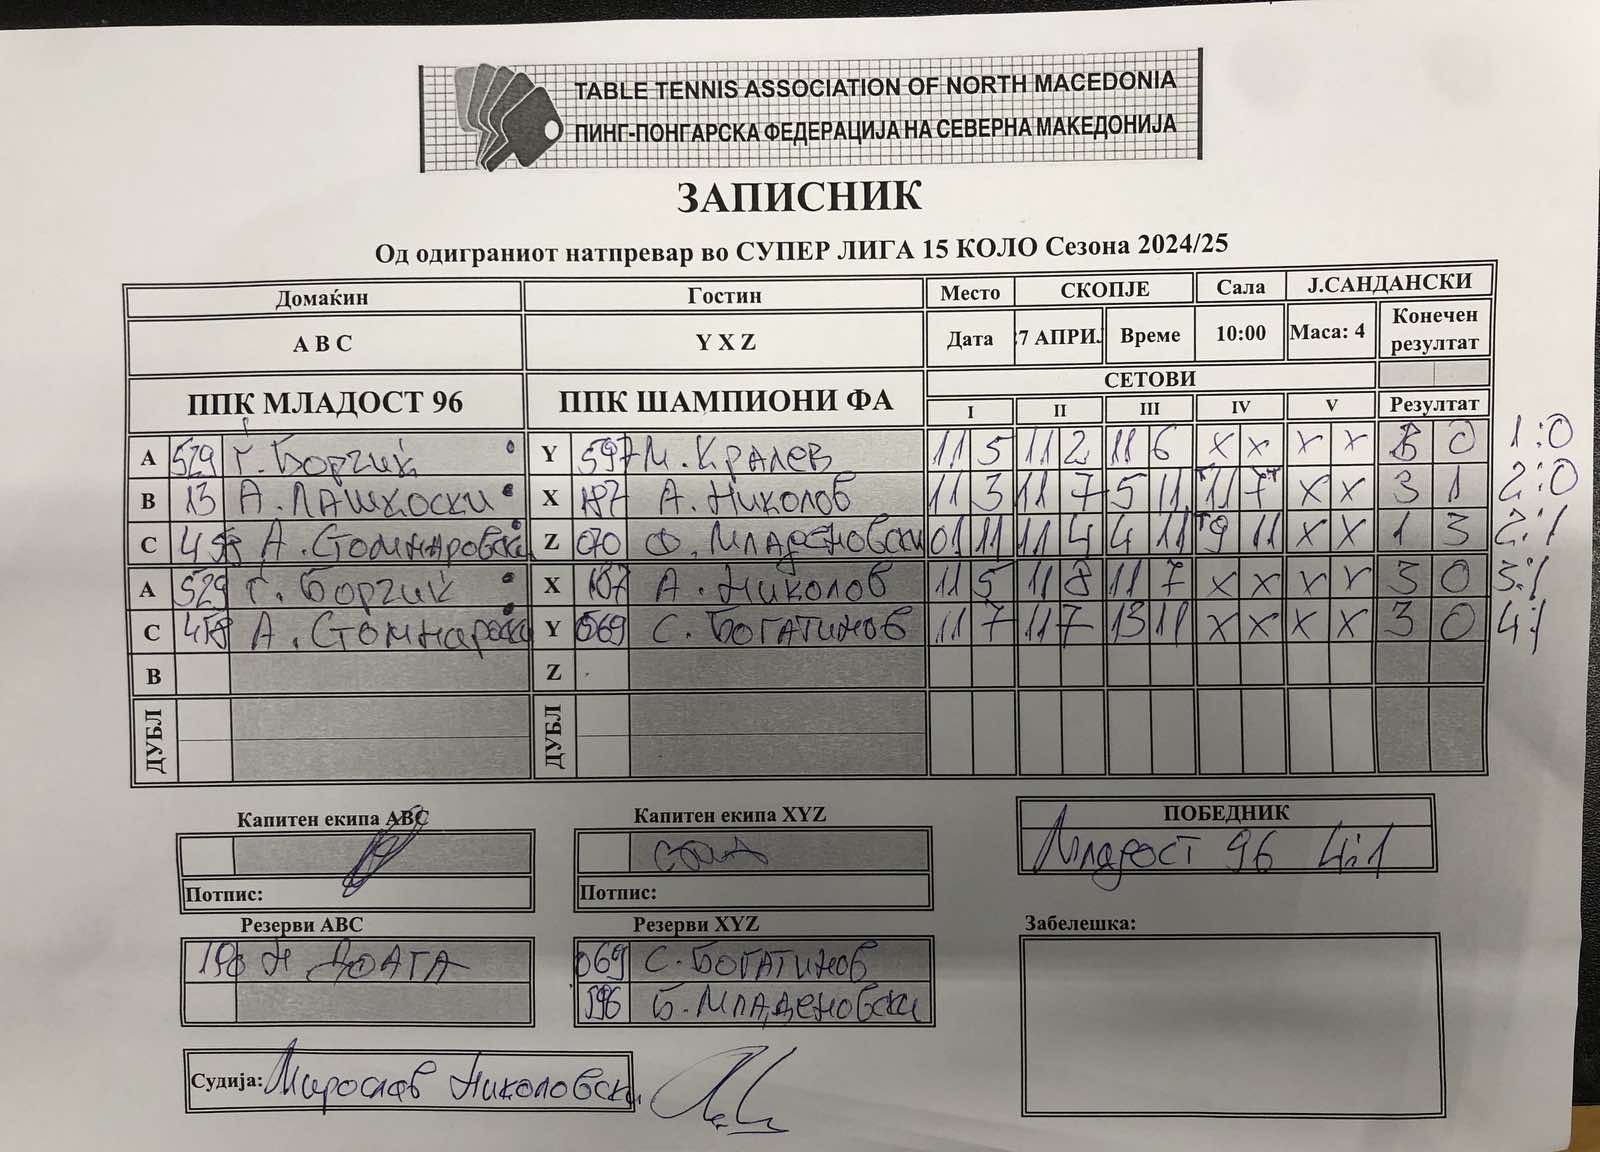 TABLE TENNIS ASSOCIATION OF NORTH MACEDONIA
ПИНГ-ПОНГАРСКА ФЕДЕРАЦИЈА НА СЕВЕРНА МАКЕДОНИЈА
ЗАПИСНИК
Од одиграниот натпревар во СУПЕР ЛИГА 15 КОЛО Сезона 2024/25
Домаќин Гостин Место СКОПЈЕ Сала Ј.САНДАНСКИ
A B C Y X Z Дата 7 АПРИ. Време 10:00 Маса: 4 Конечен резултат
ППК МЛАДОСТ 96 ППК ШАМПИОНИ ФА СЕТОВИ
I II III IV V Резултат
A 529 Ѓ. Борчиќ Y 597 М. Кралев 11 5 11 2 11 6 X X X X 3 0 1:0
B 13 А. Пашкоски X 187 А. Николов 11 3 11 7 5 11 11 7 X X 3 1 2:0
C 458 А. Стомнаровски Z 070 Ф. Младеновски 01 11 11 4 4 11 9 11 X X 1 3 2:1
A 529 Ѓ. Борчиќ X 187 А. Николов 11 5 11 8 11 7 X X X X 3 0 3:1
C 458 А. Стомнаровски Y 069 С. Богатинов 11 7 11 7 13 11 X X X X 3 0 4:1
B Z
ДУБЛ ДУБЛ
Капитен екипа ABC Капитен екипа XYZ ПОБЕДНИК
Младост 96 4:1
Потпис: Потпис:
Резерви ABC Резерви XYZ Забелешка:
190 Н ДОАГА 069 С. Богатинов
596 Б. Младеновски
Судија: Мирослав Николовски